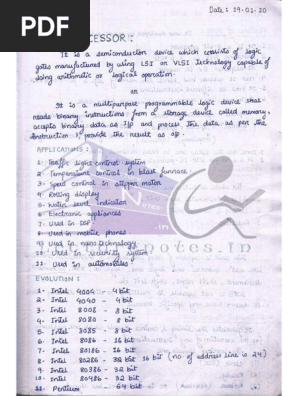 PDF
Date: 29.01.20
CESSOR:
It is a semiconductor device which consists of logic
gates manufactured by using LSI or VLSI Technology capable of
doing arithmetic or logical operation.
or
It is a multipurpose programmable logic device that
reads binary instructions from a storage device called memory,
accepts binary data as I/p and process the data as per the
instruction & provide the result as o/p.
APPLICATIONS:
1. Traffic light control system
2. Temperature control in blast furnace
3. Speed control in stepper motor
4. Rolling display
5. Water level indication
6. Electronic appliances
7. Used in DSP
8. Used in mobile phones
9. Used in nano technology
10. Used in security system
11. Used in automobiles
notes.in
EVOLUTION:
1. Intel 4004 - 4 bit
2. Intel 4040 - 4 bit
3. Intel 8008 - 8 bit
4. Intel 8080 - 8 bit
5. Intel 8085 - 8 bit
6. Intel 8086 - 16 bit
7. Intel 80186 - 16 bit
8. Intel 80286 - 32 bit 16 bit (no of address line is 24)
9. Intel 80386 - 32 bit
10. Intel 80486 - 32 bit
11. Pentium - 64 bit